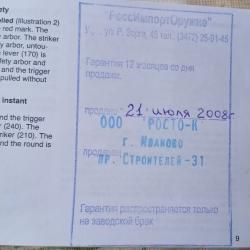 ety
lied (Illustration 2)
red mark. The
y arbor. The striker
y arbor, untou-
lever (170) is
ety arbor and
and the trigger
pulled without
instant
nd the trigger
(240). The
riker (210). The
nd the round is
"РоссИмпортОружие"
ул Р. Зорге, 45 тел. (3472) 25-91-45
Гарантия 12 месяцев со дня
продажи.
продано 21 июля 2008г
ООО "РОСТО-К"
г. Иваново
продавец
пр. Строителей-31
Гарантия распространяется только
на заводской брак
9